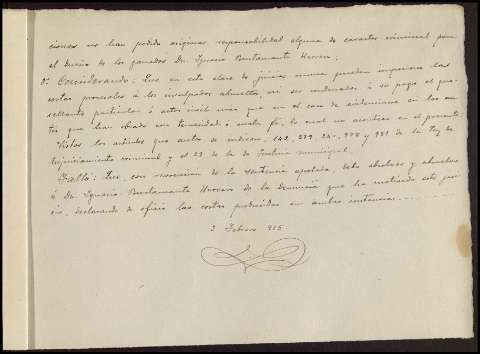 ciones no han podido originar responsabilidad alguna de caracter criminal para
el dueño de los ganados Dn. Ignacio Bustamante Herrero;
5º Considerando: Que en esta clase de juicios nunca pueden imponerse las
costas procesales á los inculpados absueltos, ni ser condenados á su pago el que-
rellante particular ó actor civil más que en el caso de evidenciarse en los au-
tos que han obrado con temeridad ó mala fé, lo cual no acontece en el presente;
Vistos los artículos que antes se indican, 142, 239, 240, 978 y 981 de la ley de
Enjuiciamiento criminal y el 23 de la de Justicia municipal,
Fallo: Que, con revocación de la sentencia apelada, debo absolver y absuelvo
á Dn. Ignacio Bustamante Herrero de la denuncia que ha motivado este jui-
cio, declarando de oficio las costas producidas en ambas instancias.
2 Febrero 915